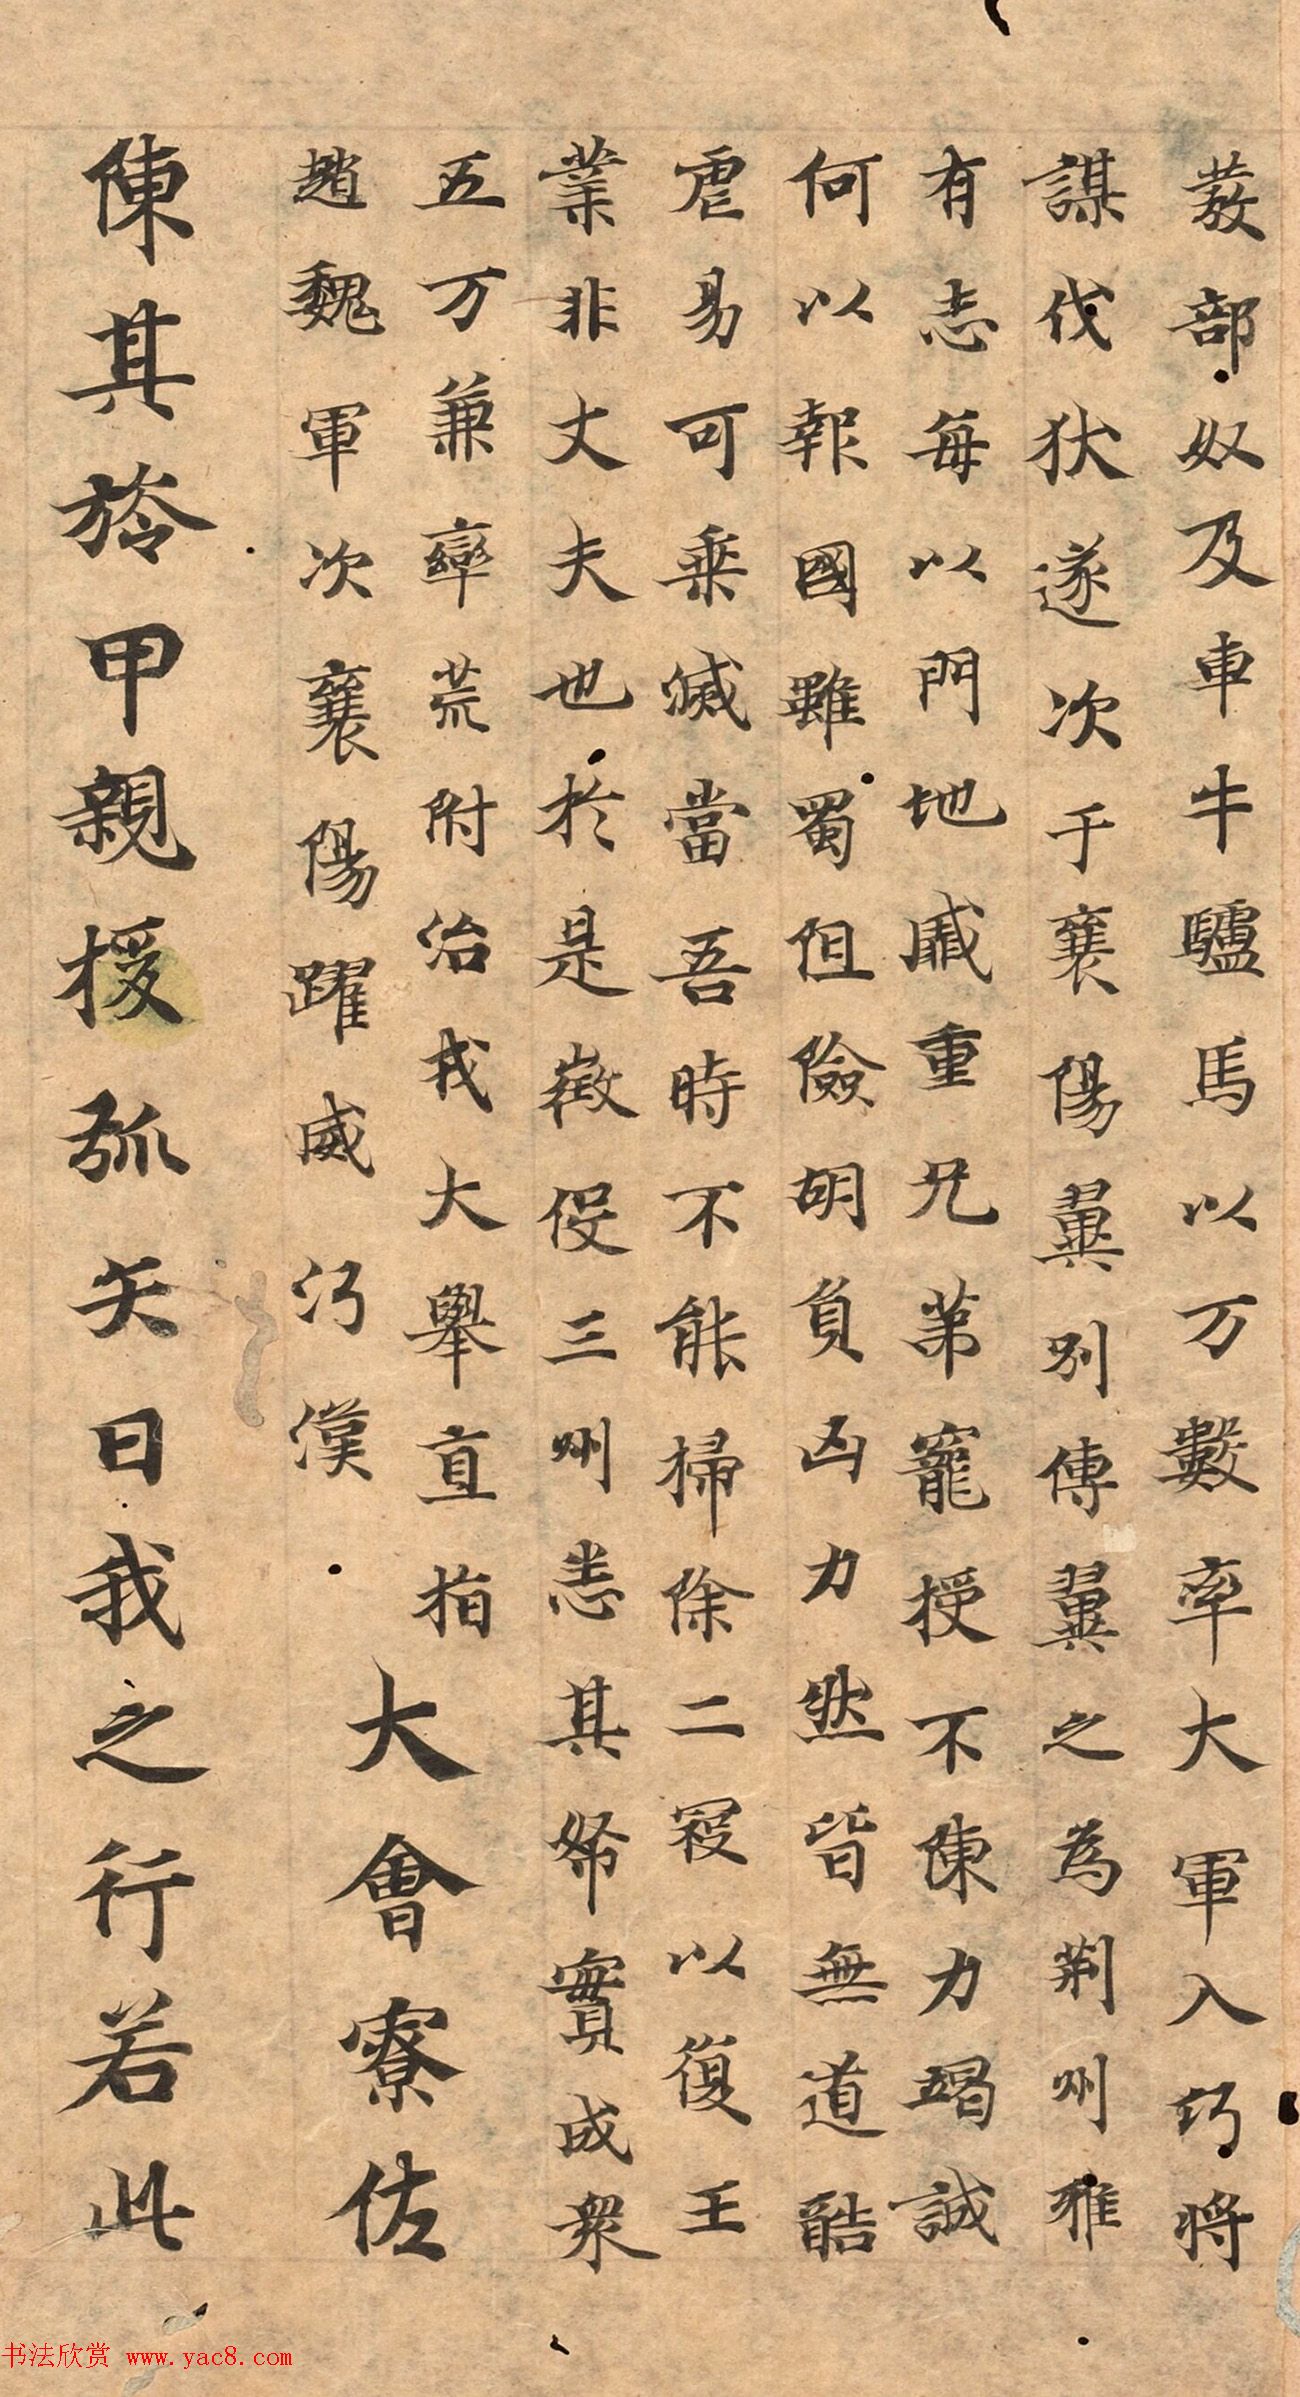 發部奴及車牛驢馬以万數率大軍入沔將
謀伐狄遂次于襄陽翼別傳翼之為荊州雅
有志每以門地戚重兄弟寵授不陳力竭誠
何以報國雖蜀阻險胡負凶力然皆無道酷
虐易可乗滅當吾時不能掃除二寇以復王
業非丈夫也於是徵役三州悉其帑實成衆
五万兼率荒附治戎大舉直指
趙魏軍次襄陽躍威沔漢
大會寮佐
陳其旍甲親援弧矢曰我之行若此
书法欣赏 www.yac8.com